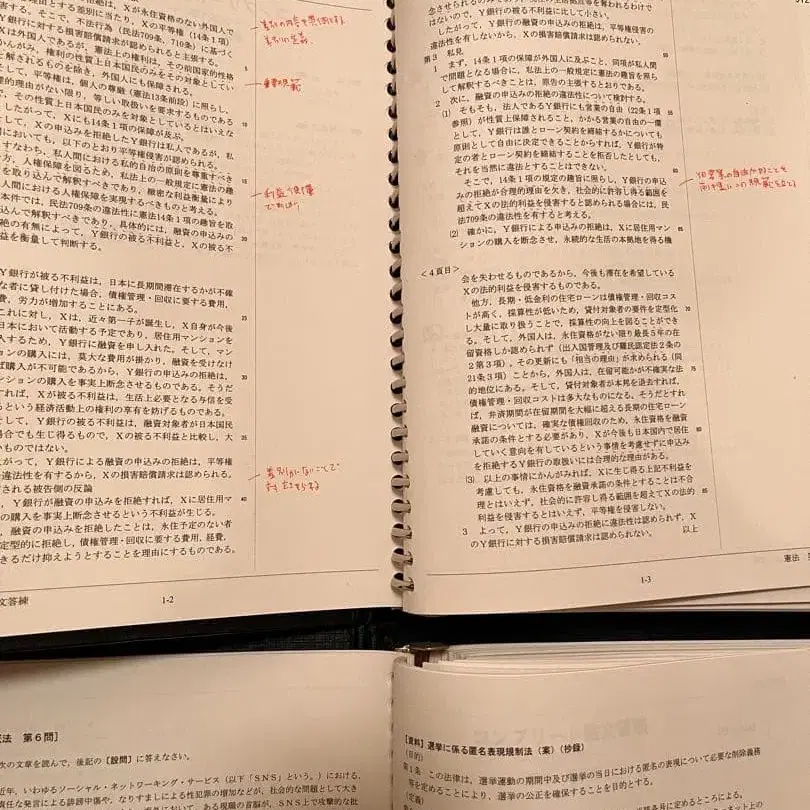 は、Xが永住資格のない外国人で
とする差別に当たり、Xの平等権（14条1項）
害する。そこで、不法行為（民法709条、710条）に基づく
Y銀行に対する損害賠償請求が認められると主張する。
Xは外国人であるが、憲法上の権利は、その前国家的性格
かんがみ、権利の性質上日本国民のみをその対象としてい
解されるものを除き、外国人にも保障される。
して、平等権は、個人の尊厳（憲法13条前段）に照らし、
理的理由がない限り、等しい取扱いを要求するものである
で、その性質上日本国民のみを対象とするとはいえな
したがって、Xにも14条1項の保障が及ぶ。
して、Xの申込みを拒絶したY銀行は私人であるが、私
においても、以下のとおり平等権侵害が認められる。
すなわち、私人間における私的自治の原則を尊重すべき
方、人権保障を図るため、私法上の一般規定に憲法の趣
を取り込んで解釈すべきであり、緻密な利益衡量により
人間における人権保障を実現するべきものと考える。
本件では、民法709条の違法性に憲法14条1項の趣旨を取
込んで解釈すべきであり、具体的には、融資の申込みの
絶の有無によって、Y銀行の被る不利益と、Xの被る不
益を衡量して判断する。
Y銀行が被る不利益は、日本に長期間滞在するかが不確
な者に貸し付けた場合、債権管理・回収に要する費用、
費、労力が増加することにある。
これに対し、Xは、近々第一子が誕生し、X自身が今後
日本において活動する予定であり、居住用マンションを
入するため、Y銀行に融資を申し入れた。そして、マン
ョンの購入には、莫大な費用が掛かり、融資を受けなけ
ば購入が不可能であるから、Y銀行の申込みの拒絶は、
ンションの購入を事実上断念させるものである。そうだ
すれば、Xが被る不利益は、生活上必要となる与信を受
るという経済活動上の権利の享有を妨げるものである。
して、Y銀行の被る不利益は、融資対象者が日本国民
場合でも生じ得るもので、Xの被る不利益と比較し、大
いものではない。
がって、Y銀行による融資の申込みの拒絶は、平等権
違法性を有するから、Xの損害賠償請求は認められる。
される被告側の反論
、Y銀行が融資の申込みを拒絶すれば、Xに居住用マ
の購入を事実上断念させるという不利益が生じる。
、融資の申込みを拒絶したことは、永住予定のない者
定型的に拒絶し、債権管理・回収に要する費用、経費、
きるだけ抑えようとすることを理由にするものである。
文答練
1-2
はないので、Y銀行の被る不利益に比して小さい。
したがって、Y銀行の融資の申込みの拒絶は、平等権侵害の
違法性を有しないから、Xの損害賠償請求は認められない。
第3　私見
1　まず、14条1項の保障が外国人に及ぶこと、同項が私人間
で問題となる場合に、私法上の一般規定に憲法の趣旨を照ら
して解釈するべきことは、原告の主張するとおりである。
2　次に、融資の申込みの拒絶の違法性について検討する。
(1)　そもそも、法人であるY銀行にも営業の自由（22条1項
参照）が性質上保障されること、かかる営業の自由の一環
として、Y銀行は誰とローン契約を締結するかについても
原則として自由に決定できることからすれば、Y銀行が特
定の者とローン契約を締結することを拒否したとしても、
それを当然に違法とすることはできない。
そこで、14条1項の規定の趣旨に照らし、Y銀行の申込
みの拒絶が合理的理由を欠き、社会的に許容し得る範囲を
超えてXの法的利益を侵害すると認められる場合には、民
法709条の違法性を有すると考える。
(2)　確かに、Y銀行による申込みの拒絶は、Xに居住用マン
ションの購入を断念させ、永続的な生活の本拠地を得る機
＜4頁目＞
会を失わせるものであるから、今後も滞在を希望している
Xの法的利益を侵害するものである。
他方、長期・低金利の住宅ローンは債権管理・回収コス
トが高く、採算性が低いため、貸付対象者の要件を定型化
し大量に取り扱うことで、採算性の向上を図ることができ
る。そして、外国人は、永住資格がない限り最長5年の在
留資格しか認められず（出入国管理及び難民認定法2条の
2第3項）、その更新にも「相当の理由」が求められる（同
21条3項）ことから、外国人は、在留可能かが不確実な法
的地位にある。そして、貸付対象者が本邦を退去すれば、
債権管理・回収コストは多大なものになる。そうだとすれ
ば、弁済期間が在留期間を大幅に超える長期の住宅ローン
融資については、確実な債権回収のため、永住資格を融資
承諾の条件とする必要があり、Xが今後も日本国内で居住し
ていく意向を有しているという事情を考慮せずに申込み
を拒絶するY銀行の取扱いには合理的な理由がある。
(3)　以上の事情にかんがみれば、Xに生じる上記不利益を
考慮しても、永住資格を融資承諾の条件とすることは不合
理とはいえず、社会的に許容し得る範囲を超えてXの法的
利益を侵害するとはいえず、平等権を侵害しない。
3　よって、Y銀行の申込みの拒絶に違法性は認められず、X
のY銀行に対する損害賠償請求は認められない。　以上
憲法
1-3
法　第6問］
次の文章を読んで、後記の〔設問〕に答えなさい。
近年、いわゆるソーシャル・ネットワーキング・サービス（以下「SNS」という。）における、
責任な発言による誹謗中傷や、なりすましによる性犯罪の増加などが、社会的な問題として大き
【資料】選挙に係る匿名表現規制法（案）（抄録）
（目的）
第1条　この法律は、選挙運動の期間中及び選挙の当日における匿名の表現について必要な削除義務
等を定めることにより、選挙の公正を確保することを目的とする。
（定義）